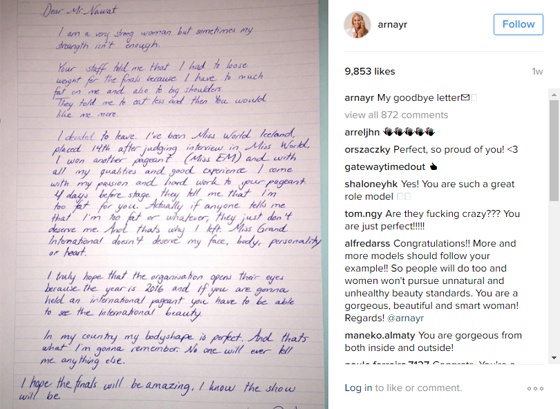 Dear Mr. Nawat
I am a very strong woman but sometimes my
strength isn't enough.
Your staff told me that I had to loose
weight for the finals because I have to much
fat on me and also to big shoulders.
They told me to eat less and then You would
like me more.
I decided to leave. I've been Miss World Iceland,
placed 14th after judging interview in Miss World
I won another pageant (Miss EM) and with
all my qualities and good experience I come
with my passion and hard work to your pageant.
4 days before stage they tell me that I'm
too fat for you. Actually if anyone tells me
that I'm too fat or whatever, they just don't
deserve me. And thats why I left. Miss Grand
International doesn't deserve my face, body, personality
or heart.
I truly hope that the organisation opens their eyes
because the year is 2016 and if you are gonna
held an international pageant you have to be able
to see the international beauty.
In my country my bodyshape is perfect. And thats
what I'm gonna remember. No one will ever tell
me anything else.
I hope the finals will be amazing, I know the show
will be
arnayr
Follow
9,853 likes
1w
arnayr My goodbye letter
view all 872 comments
arreljhn
orszaczky Perfect, so proud of you! <3
gatewaytimedout
shaloneyhk Yes! You are such a great
role model
tom.ngy Are they fucking crazy??? You
are just perfect!!!!!
alfredarss Congratulations!! More and
more models should follow your
example!! So people will do too and
women won't pursue unnatural and
unhealthy beauty standards. You are a
gorgeous, beautiful and smart woman!
Regards! @arnayr
maneko.almaty You are gorgeous from
both inside and outside!
Log in to like or comment.